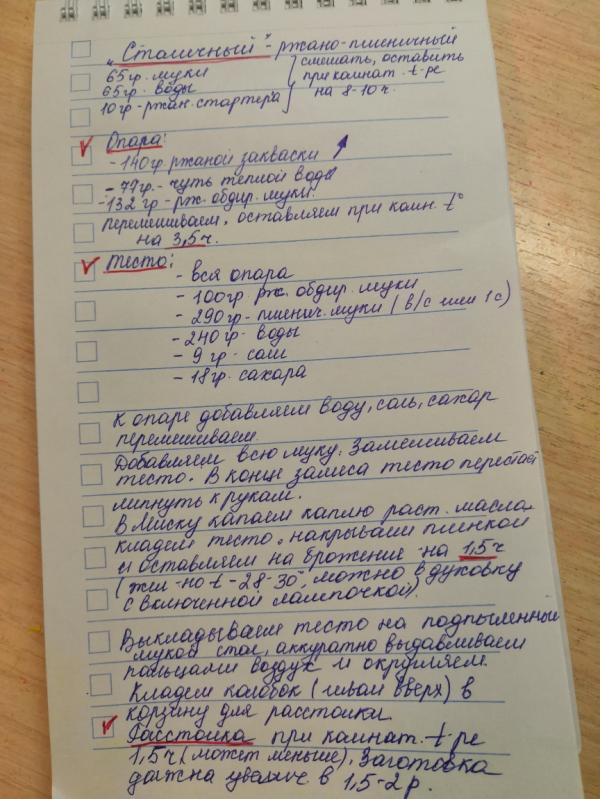 "Столичный"- ржано-пшеничный
65гр. муки
65гр. воды
10гр-ржан. стартера
смешать, оставить
при комнат. t-ре
на 8-10ч.
Опара:
-140гр. ржаной закваски
-77гр.- чуть теплой воды
-132гр-рж. обдир. муки.
Перемешиваем, оставляем при комн. t°
на 3,5ч.
Тесто:
- вся опара
- 100гр. рж. обдир. муки
- 290гр.-пшенич. муки (в/с или 1с)
- 240гр- воды
- 9гр- соли
- 18гр. сахара
К опаре добавляем воду, соль, сахар
перемешиваем.
Добавляем всю муку. Замешиваем
тесто. В конце замеса тесто перестает
липнуть к рукам.
В миску капаем каплю раст. масла
кладем тесто, накрываем пленкой
и оставляем на брожение на 1,5ч
(жел-но t-28-30°, можно в духовку
с включенной лампочкой).
Выкладываем тесто на подпыленный
мукой стол, аккуратно выдавливаем
пальцами воздух и округляем.
Кладем колобок (швом вверх) в
корзину для расстойки.
Расстойка при комнат. t-ре
1,5ч (может меньше). Заготовка
должна увелич. в 1,5-2р.